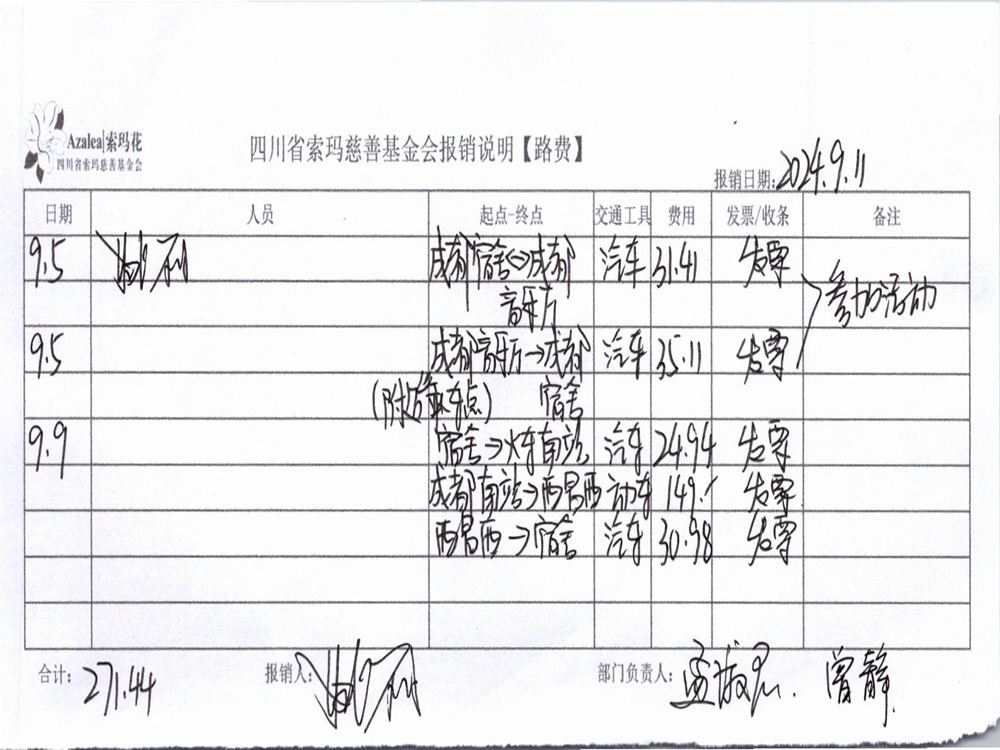 Azalea|索玛花
四川省索玛慈善基金会
四川省索玛慈善基金会报销说明【路费】
报销日期:2024.9.11
日期 人员 起点-终点 交通工具 费用 发票/收条 备注
9.5 成都宿舍<->成都 汽车 31.41 发票
音乐厅 参加活动
9.5 成都音乐厅->成都 汽车 35.11 发票
宿舍
9.9 宿舍->火车南站 汽车 24.94 发票
成都南站->西昌西 动车 149.- 发票
西昌西->宿舍 汽车 30.98 发票
合计:271.44 报销人: 部门负责人: 曾静